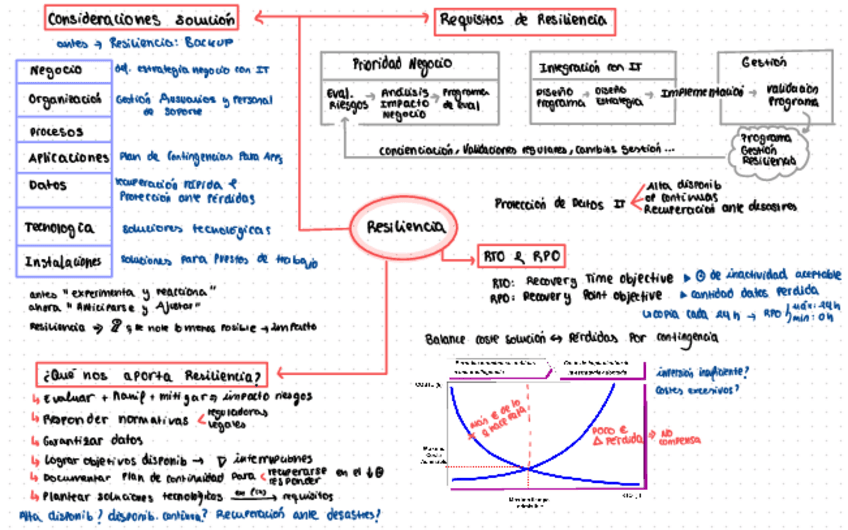 Consideraciones solución
antes → Resiliencia: BACKUP
Negocio
def. estrategia negocio con IT
Organización
Gestión Ausuarios y Personal de soporte
procesos
Aplicaciones
Plan de Contingencias Para Apps
Datos
recuperación rápida e
Protección ante Pérdidas
Tecnología
soluciones tecnológicas
Instalaciones
soluciones para Puestos de trabajo
antes "experimenta y reacciona"
ahora "Anticiparse y Ajustar"
Resiliencia → q se note lo menos Posible → impacto
Requisitos de Resiliencia
Prioridad Negocio
Eval. Riesgos → Análisis Impacto Negocio → Programa de eval
Integración con IT
Diseño Programa → Diseño Estrategia → Implementación →
Gestión
validación Programa
Programa Gestión Resiliencia
concienciación, validaciones regulares, cambios gestión...
Protección de Datos IT
Alta disponib
op continuas
Recuperación ante desastres
Resiliencia
RTO & RPO
RTO: Recovery Time objective ▸ de inactividad aceptable
RPO: Recovery Point objective ▸ cantidad datos Perdida
↳ copia cada 24h → RPO máx: 24h
min: 0h
Balance coste solución ↔ Pérdidas Por contingencia
inversión insuficiente?
costes excesivos?
Más € de lo q hace falta
POCO €
Δ Pérdida ⇒ NO compensa
¿Qué nos aporta Resiliencia?
↳ Evaluar + Planif + mitigar ⇒ impacto riesgos
↳ Responder normativas
reguladoras
legales
↳ Garantizar datos
↳ Lograr objetivos disponib → ∇ interrupciones
↳ Documentar Plan de continuidad Para
recuperarse
responder
en el ↓
↳ Plantear soluciones tecnológicas en f(x) → requisitos
Alta disponib? disponib. continua? Recuperación ante desastres?